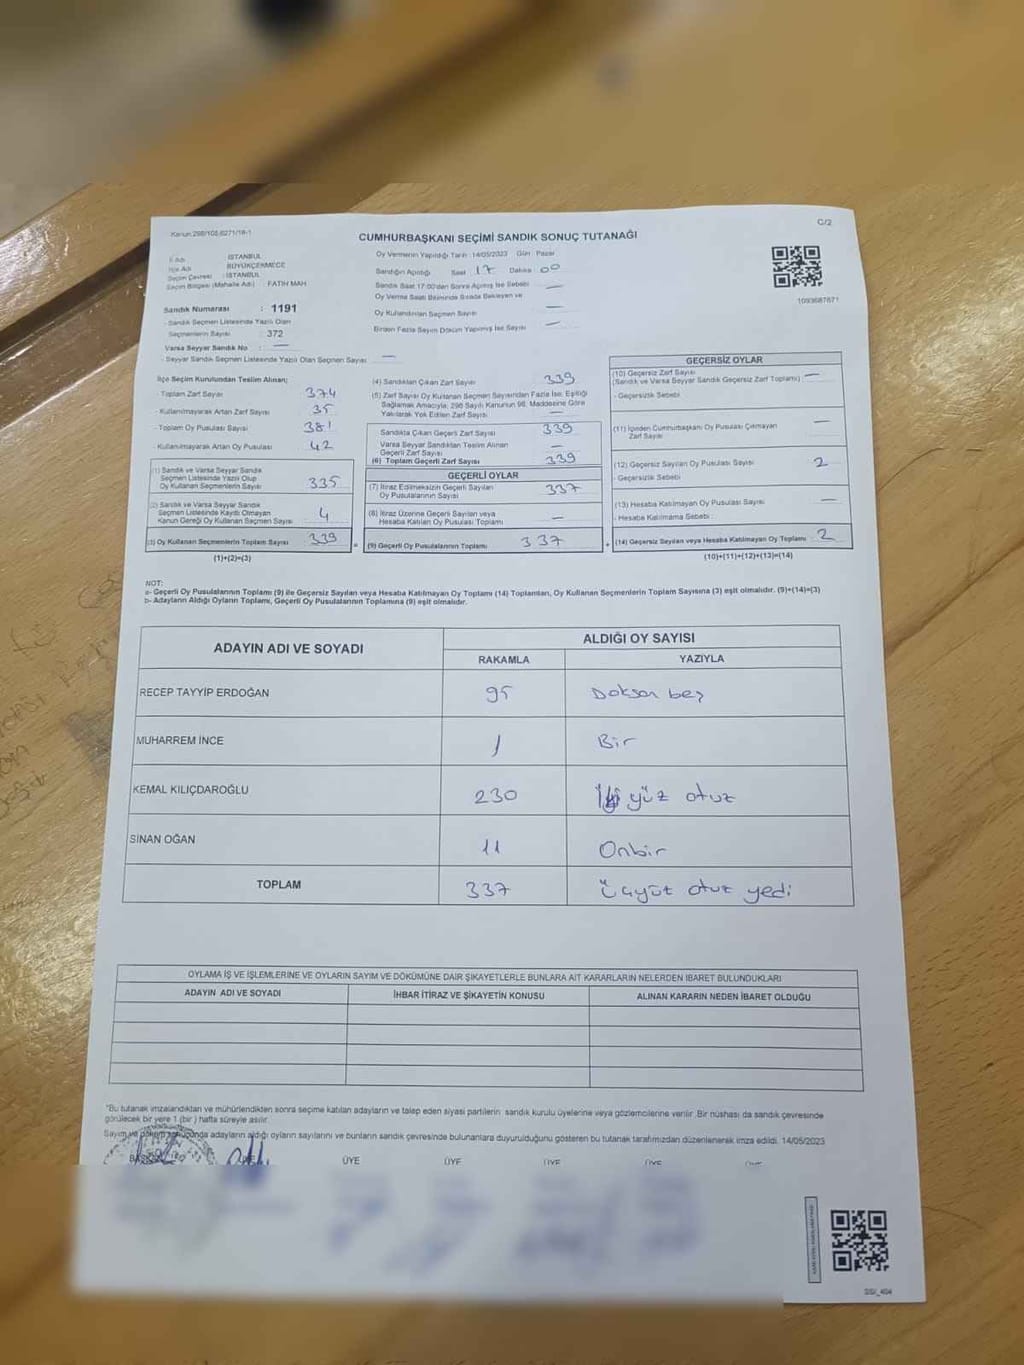 C/2
CUMHURBAŞKANI SEÇİMİ SANDIK SONUÇ TUTANAĞI
İl Adı : İSTANBUL
İlçe Adı : BÜYÜKÇEKMECE
Seçim Çevresi : İSTANBUL
Seçim Bölgesi (Mahalle Adı) : FATİH MAH
Sandık Numarası : 1191
- Sandık Seçmen Listesinde Yazılı Olan
Seçmenlerin Sayısı : 372
Varsa Seyyar Sandık No : —
- Seyyar Sandık Seçmen Listesinde Yazılı Olan Seçmen Sayısı —
Oy Vermenin Yapıldığı Tarih :14/05/2023 Gün : Pazar
Sandığın Açıldığı Saat 17 Dakika 00
Sandık Saat 17:00'den Sonra Açılmış İse Sebebi —
Oy Verme Saati Bitiminde Sırada Bekleyen ve
Oy Kullandırılan Seçmen Sayısı —
Birden Fazla Sayım Döküm Yapılmış İse Sayısı —
1093687671
İlçe Seçim Kurulundan Teslim Alınan;
- Toplam Zarf Sayısı 374
- Kullanılmayarak Artan Zarf Sayısı 35
- Toplam Oy Pusulası Sayısı 381
- Kullanılmayarak Artan Oy Pusulası 42
(1) Sandık ve Varsa Seyyar Sandık
Seçmen Listesinde Yazılı Olup
Oy Kullanan Seçmenlerin Sayısı 335
(2) Sandık ve Varsa Seyyar Sandık
Seçmen Listesinde Kayıtlı Olmayan
Kanun Gereği Oy Kullanan Seçmen Sayısı 4
(3) Oy Kullanan Seçmenlerin Toplam Sayısı 339
(1)+(2)=(3)
(4) Sandıktan Çıkan Zarf Sayısı 339
(5) Zarf Sayısı Oy Kullanan Seçmen Sayısından Fazla İse, Eşitliği
Sağlamak Amacıyla, 298 Sayılı Kanunun 98. Maddesine Göre
Yakılarak Yok Edilen Zarf Sayısı —
Sandıkta Çıkan Geçerli Zarf Sayısı 339
Varsa Seyyar Sandıktan Teslim Alınan
Geçerli Zarf Sayısı —
(6) Toplam Geçerli Zarf Sayısı 339
GEÇERLİ OYLAR
(7) İtiraz Edilmeksizin Geçerli Sayılan
Oy Pusulalarının Sayısı 337
(8) İtiraz Üzerine Geçerli Sayılan veya
Hesaba Katılan Oy Pusulası Toplamı —
= (9) Geçerli Oy Pusulalarının Toplamı 337
GEÇERSİZ OYLAR
(10) Geçersiz Zarf Sayısı
(Sandık ve Varsa Seyyar Sandık Geçersiz Zarf Toplamı) —
- Geçersizlik Sebebi
(11) İçinden Cumhurbaşkanı Oy Pusulası Çıkmayan
Zarf Sayısı —
(12) Geçersiz Sayılan Oy Pusulası Sayısı 2
- Geçersizlik Sebebi
(13) Hesaba Katılmayan Oy Pusulası Sayısı —
- Hesaba Katılmama Sebebi
+ (14) Geçersiz Sayılan veya Hesaba Katılmayan Oy Toplamı 2
(10)+(11)+(12)+(13)=(14)
NOT:
a- Geçerli Oy Pusulalarının Toplamı (9) ile Geçersiz Sayılan veya Hesaba Katılmayan Oy Toplamı (14) Toplamları, Oy Kullanan Seçmenlerin Toplam Sayısına (3) eşit olmalıdır. (9)+(14)=(3)
b- Adayların Aldığı Oyların Toplamı, Geçerli Oy Pusulalarının Toplamına (9) eşit olmalıdır.
ADAYIN ADI VE SOYADI ALDIĞI OY SAYISI
RAKAMLA YAZIYLA
RECEP TAYYİP ERDOĞAN 95 Doksan beş
MUHARREM İNCE 1 Bir
KEMAL KILIÇDAROĞLU 230 İki yüz otuz
SİNAN OĞAN 11 Onbir
TOPLAM 337 Üçyüz otuz yedi
OYLAMA İŞ VE İŞLEMLERİNE VE OYLARIN SAYIM VE DÖKÜMÜNE DAİR ŞİKAYETLERLE BUNLARA AİT KARARLARIN NELERDEN İBARET BULUNDUKLARI
ADAYIN ADI VE SOYADI İHBAR İTİRAZ VE ŞİKAYETİN KONUSU ALINAN KARARIN NEDEN İBARET OLDUĞU
"Bu tutanak imzalandıktan ve mühürlendikten sonra seçime katılan adayların ve talep eden siyasi partilerin sandık kurulu üyelerine veya gözlemcilerine verilir. Bir nüshası da sandık çevresinde
görülecek bir yere 1 (bir) hafta süreyle asılır.
Sayım ve döküm sonucunda adayların aldığı oyların sayılarını ve bunların sandık çevresinde bulunanlara duyurulduğunu gösteren bu tutanak tarafımızdan düzenlenerek imza edildi. 14/05/2023
BAŞKAN ÜYE ÜYE ÜYE ÜYE ÜYE